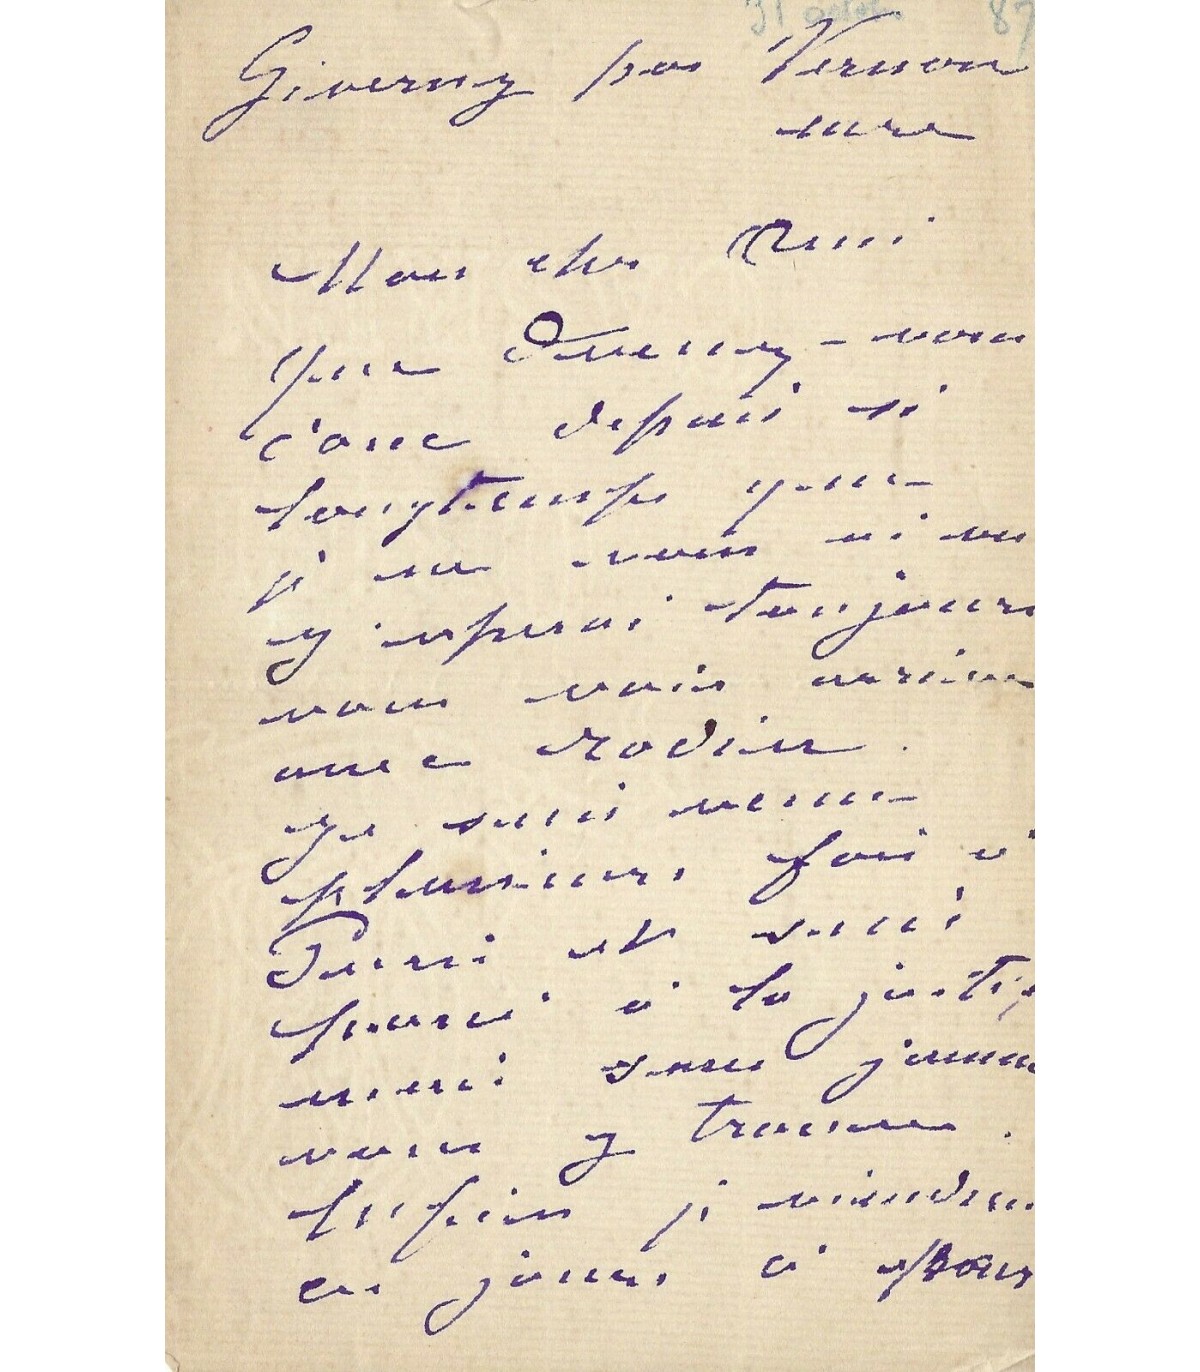 31 octob. 87
Giverny par Vernon
Eure
Mon cher Ami
Que devenez-vous
donc depuis si
longtemps que
je ne vous ai vu
j'espérai toujours
vous voir arriver
avec Rodin.
Je suis venu
plusieurs fois à
Paris et suis
passé à la justice
mais sans jamais
vous y trouver.
Enfin je viendrai
ces jours ci